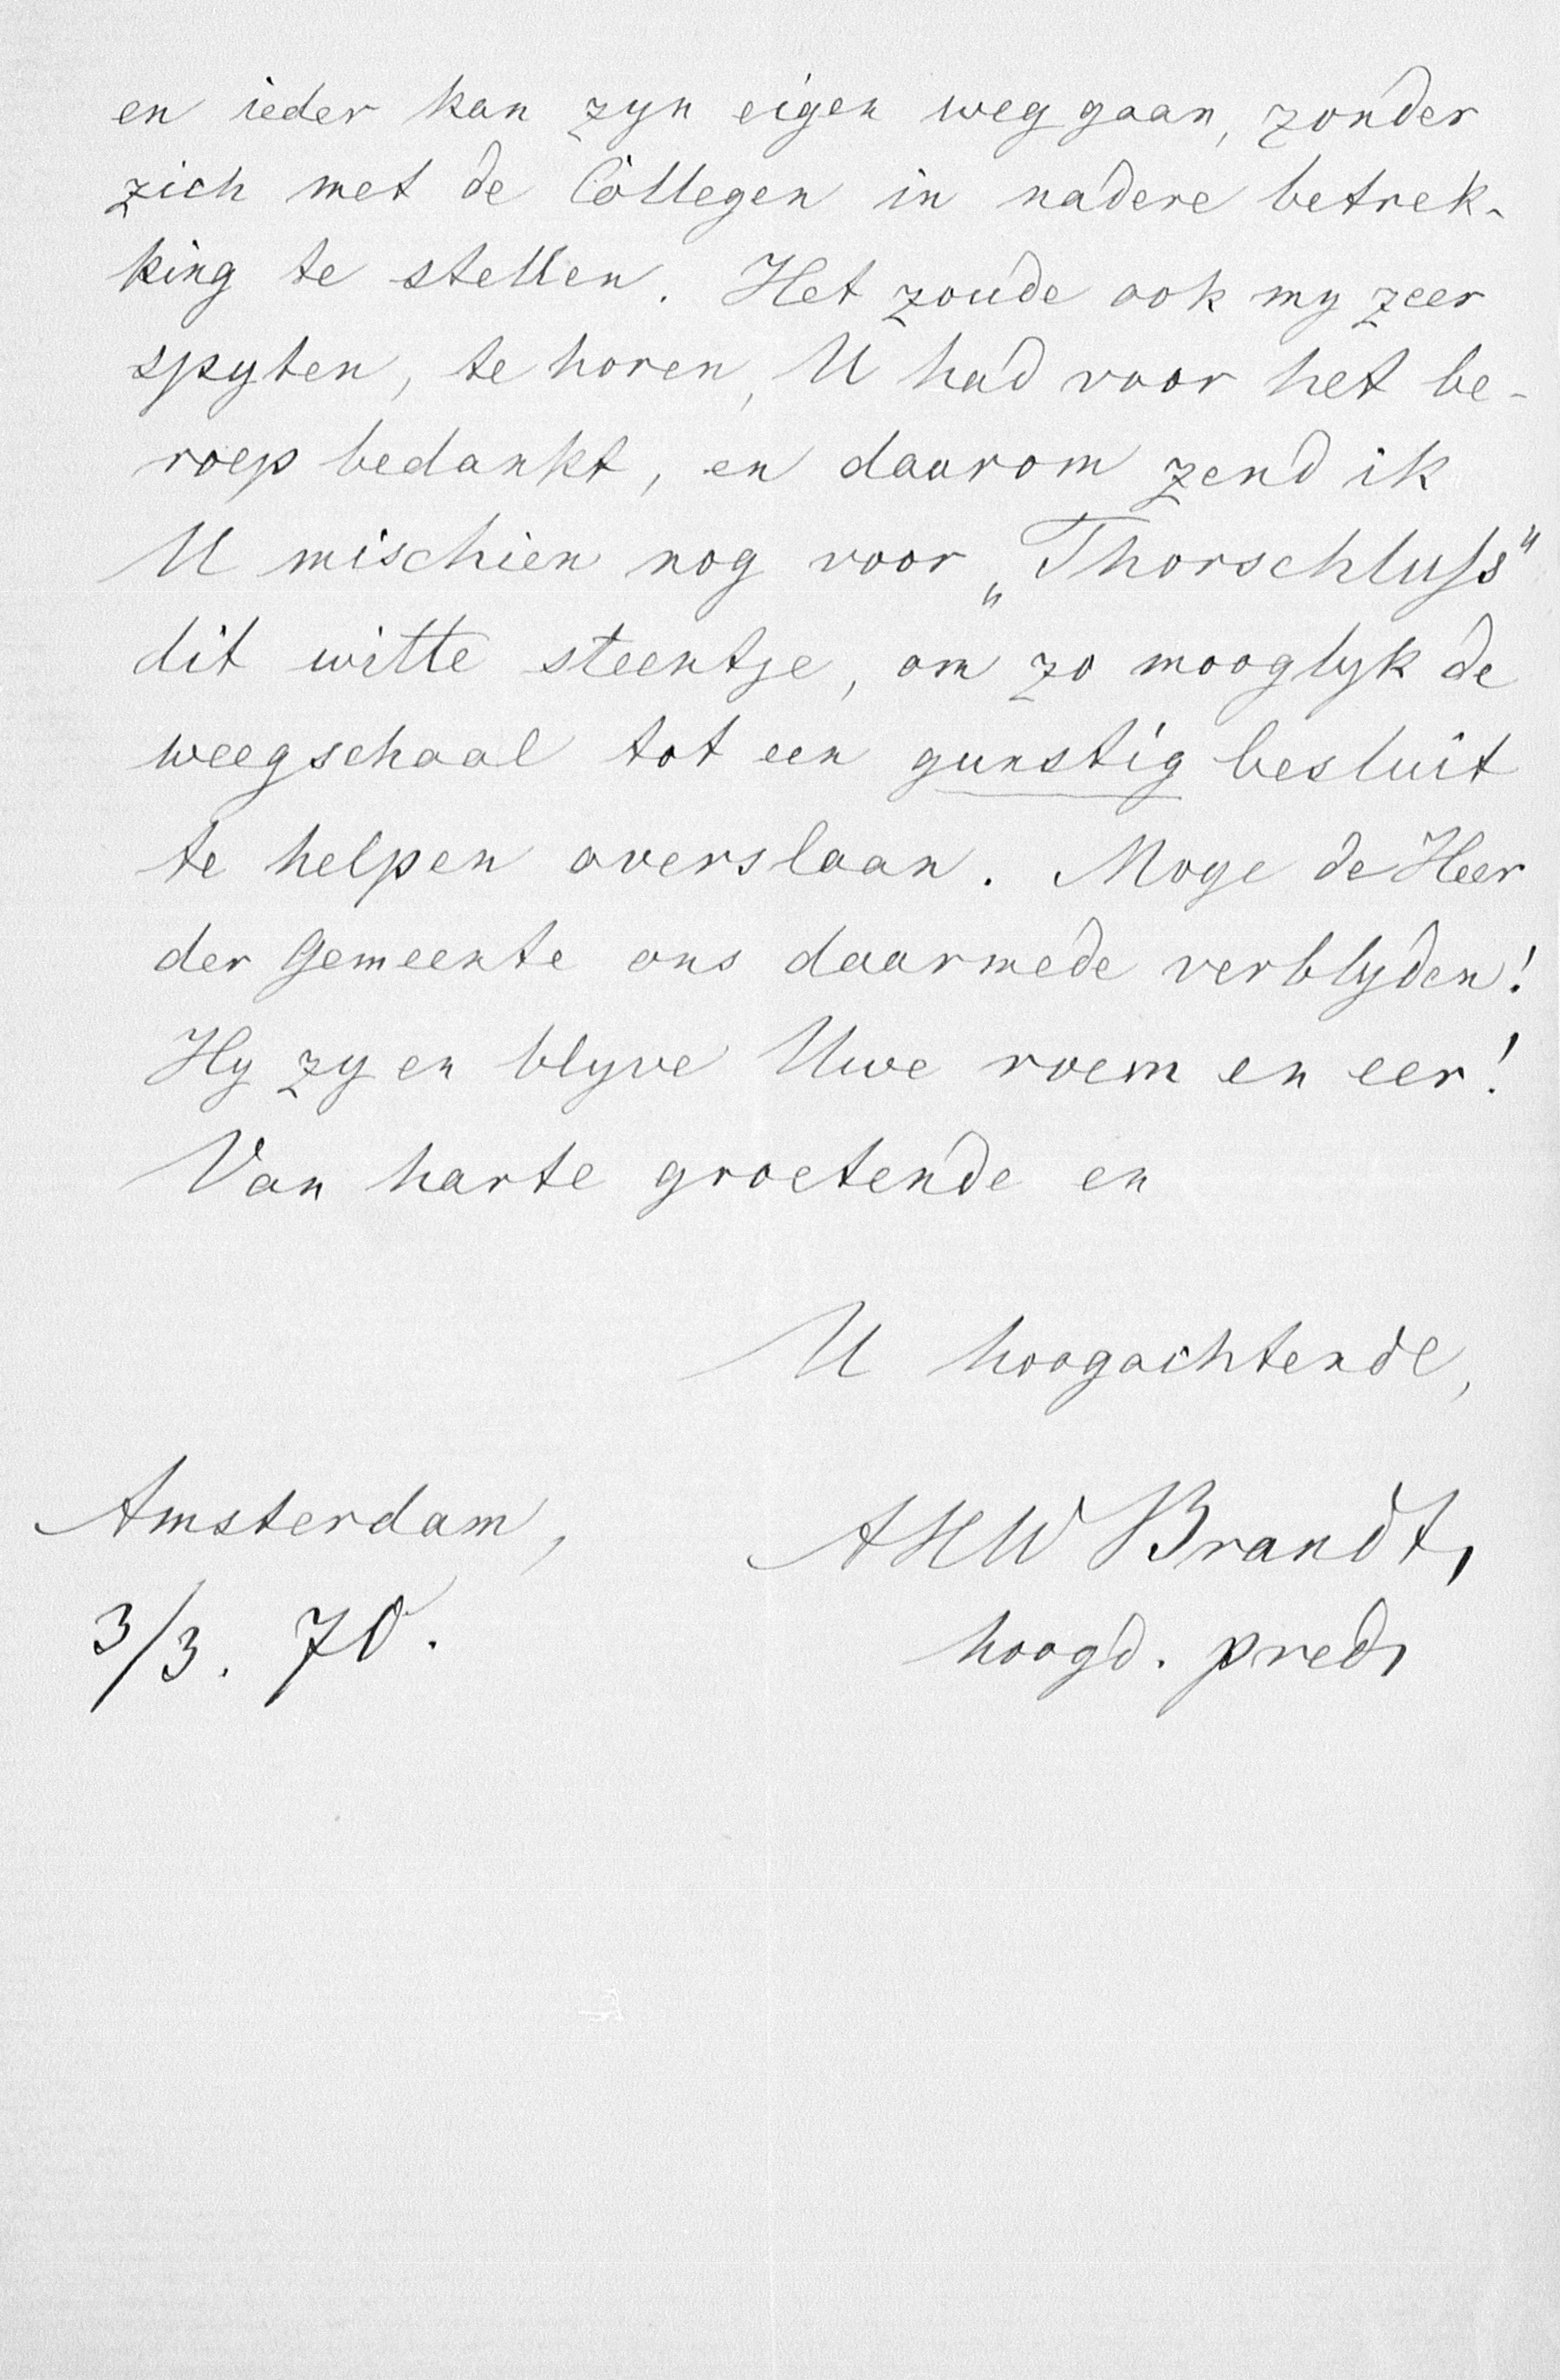 en ieder kan zyn eigen weg gaan, zonder
zich met de Collegen in nadere betrek-
king te stellen. Het zoude ook my zeer
spyten, te horen, U had voor het be-
roep bedankt, en daarom zend ik
U mischien nog voor „Thorschluſs"
dit witte steentje, om zo mooglyk de
weegschaal tot een gunstig besluit
te helpen overslaan. Moge de Heer
der Gemeente ons daarmede verblyden!
Hy zy en blyve Uwe roem en eer!
Van harte groetende en
U hoogachtende,
Amsterdam, AHW Brandt,
3/3. 70. hoogd. pred,